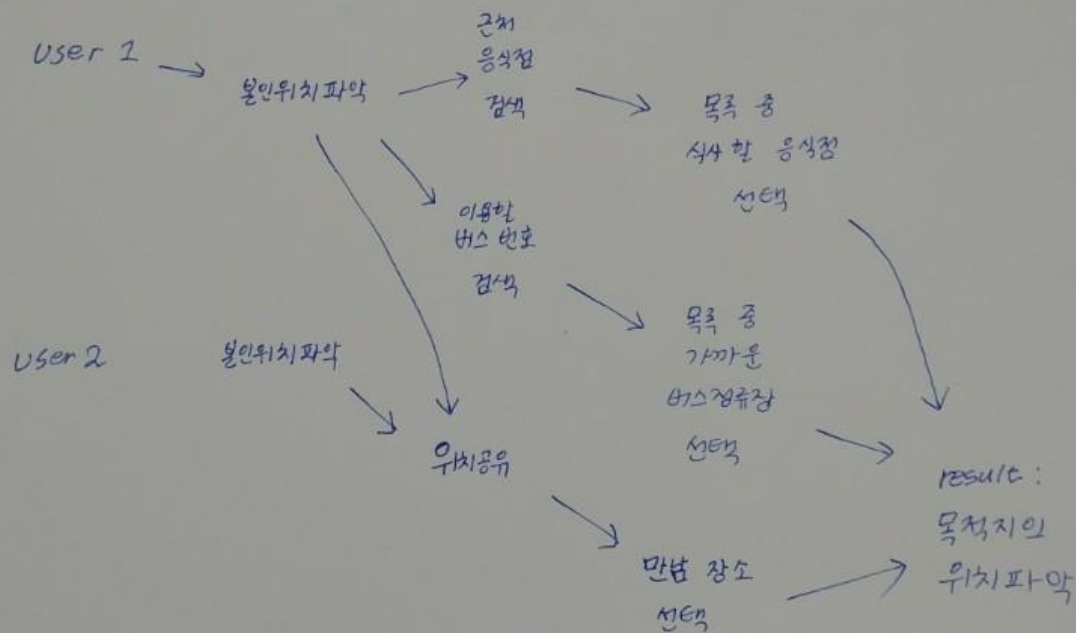 user 1
본인위치파악
근처
음식점
검색
목록 중
식사할 음식점
선택
이용할
버스 번호
검색
목록 중
가까운
버스정류장
선택
user 2
본인위치파악
위치공유
만남 장소
선택
result :
목적지의
위치파악